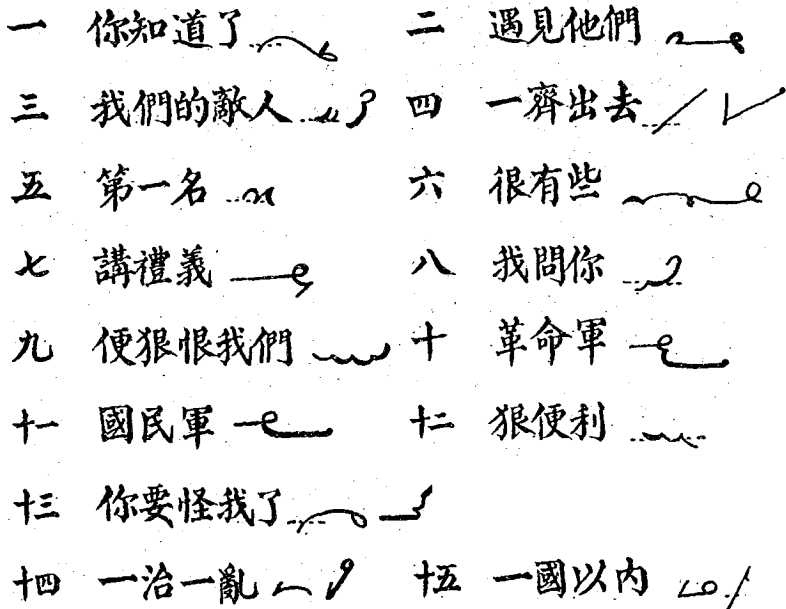 一 你知道了 二 遇見他們
三 我們的敵人 四 一齊出去
五 第一名 六 很有些
七 講禮義 八 我問你
九 便狠恨我們 十 革命軍
十一 國民軍 十二 狠便利
十三 你要怪我了
十四 一治一亂 十五 一國以内